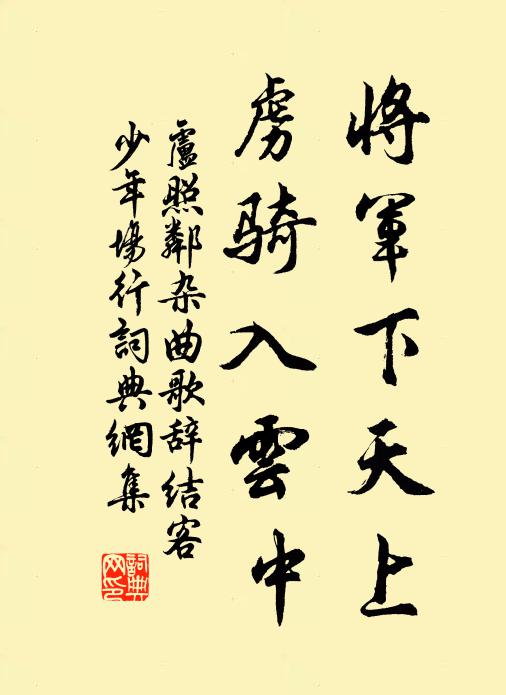 將軍下天上
虜騎入雲中
盧照鄰杂曲歌辞結客
少年場行詞典網集
詞典網印